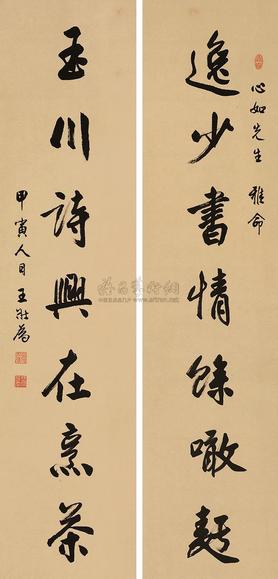 心如先生 雅命
逸少書情餘噉
玉川詩興在烹茶
甲寅人日王壯為
雅昌藝術網